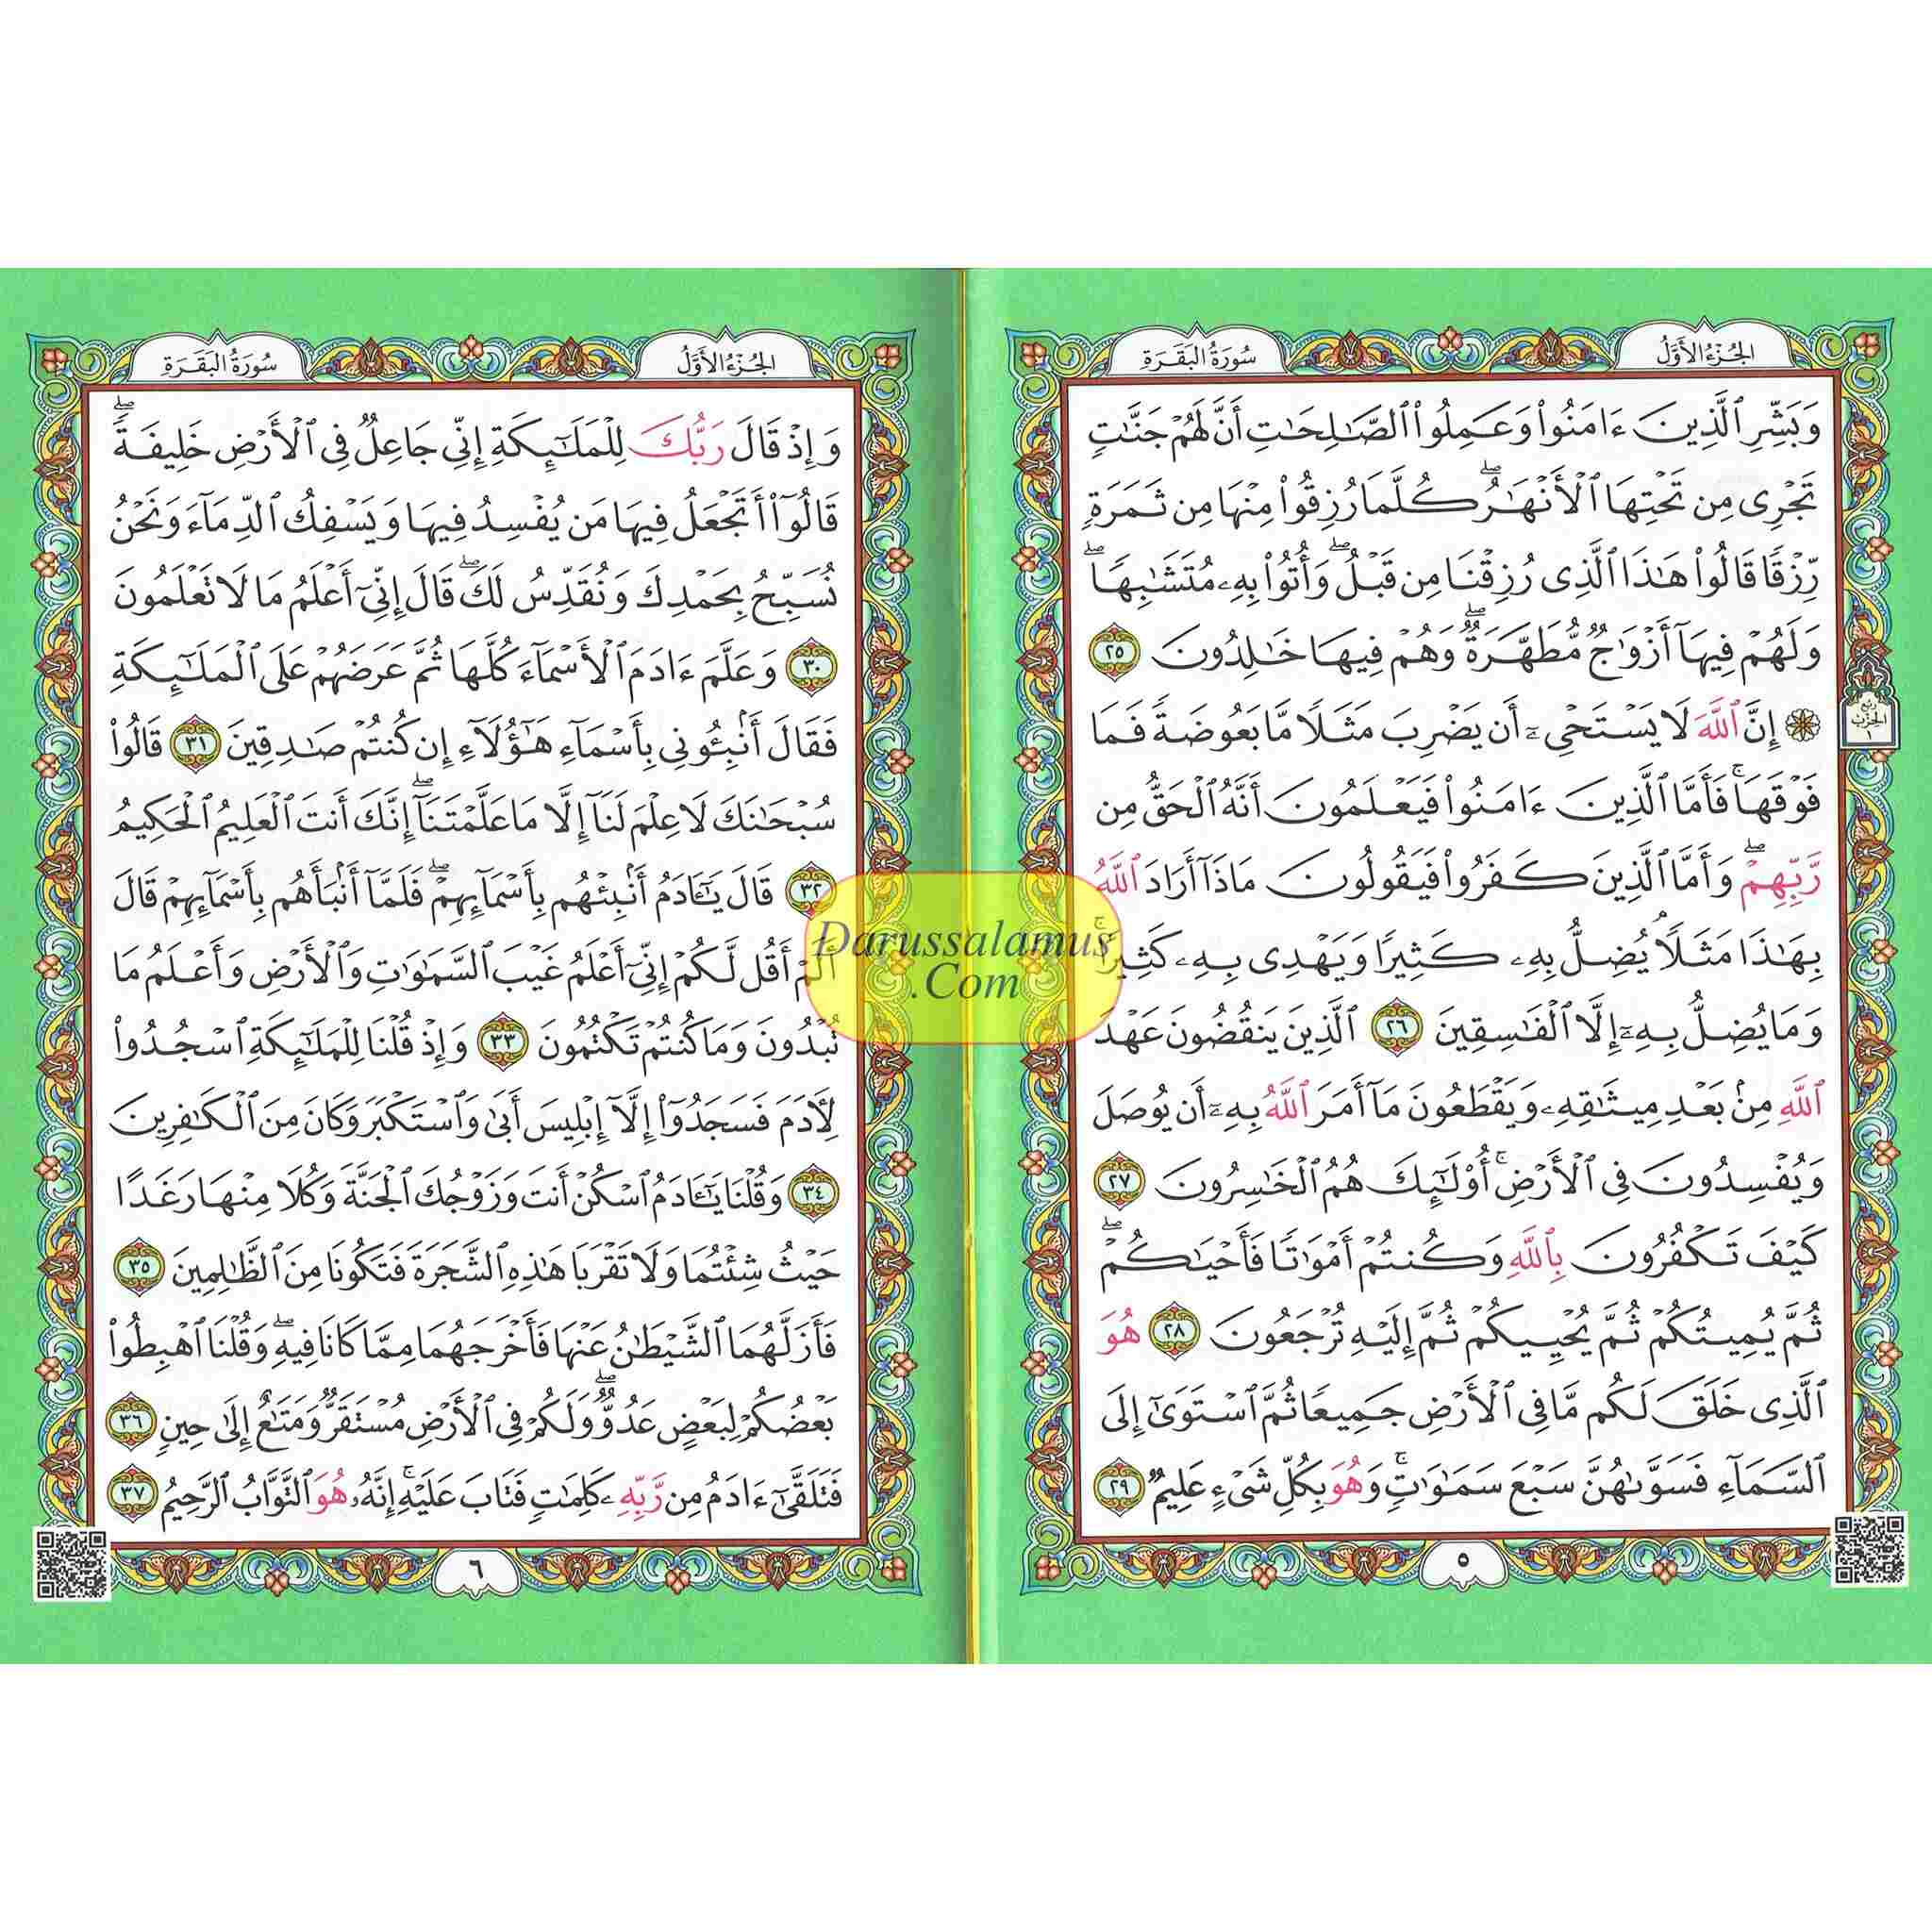 الجزء الأول
سورة البقرة
وَبَشِّرِ ٱلَّذِينَ ءَامَنُوا۟ وَعَمِلُوا۟ ٱلصَّـٰلِحَـٰتِ أَنَّ لَهُمْ جَنَّـٰتٍ
تَجْرِى مِن تَحْتِهَا ٱلْأَنْهَـٰرُ ۖ كُلَّمَا رُزِقُوا۟ مِنْهَا مِن ثَمَرَةٍ
رِّزْقًا قَالُوا۟ هَـٰذَا ٱلَّذِى رُزِقْنَا مِن قَبْلُ ۖ وَأُتُوا۟ بِهِۦ مُتَشَـٰبِهًا ۖ
وَلَهُمْ فِيهَآ أَزْوَٰجٌ مُّطَهَّرَةٌ ۖ وَهُمْ فِيهَا خَـٰلِدُونَ ٢٥
۞ إِنَّ ٱللَّهَ لَا يَسْتَحْىِۦٓ أَن يَضْرِبَ مَثَلًا مَّا بَعُوضَةً فَمَا
فَوْقَهَا ۚ فَأَمَّا ٱلَّذِينَ ءَامَنُوا۟ فَيَعْلَمُونَ أَنَّهُ ٱلْحَقُّ مِن
رَّبِّهِمْ ۖ وَأَمَّا ٱلَّذِينَ كَفَرُوا۟ فَيَقُولُونَ مَاذَآ أَرَادَ ٱللَّهُ
بِهَـٰذَا مَثَلًا ۘ يُضِلُّ بِهِۦ كَثِيرًا وَيَهْدِى بِهِۦ كَثِيرًا ۚ
وَمَا يُضِلُّ بِهِۦٓ إِلَّا ٱلْفَـٰسِقِينَ ٢٦ ٱلَّذِينَ يَنقُضُونَ عَهْدَ
ٱللَّهِ مِنۢ بَعْدِ مِيثَـٰقِهِۦ وَيَقْطَعُونَ مَآ أَمَرَ ٱللَّهُ بِهِۦٓ أَن يُوصَلَ
وَيُفْسِدُونَ فِى ٱلْأَرْضِ ۚ أُو۟لَـٰٓئِكَ هُمُ ٱلْخَـٰسِرُونَ ٢٧
كَيْفَ تَكْفُرُونَ بِٱللَّهِ وَكُنتُمْ أَمْوَٰتًا فَأَحْيَـٰكُمْ ۖ
ثُمَّ يُمِيتُكُمْ ثُمَّ يُحْيِيكُمْ ثُمَّ إِلَيْهِ تُرْجَعُونَ ٢٨ هُوَ
ٱلَّذِى خَلَقَ لَكُم مَّا فِى ٱلْأَرْضِ جَمِيعًا ثُمَّ ٱسْتَوَىٰٓ إِلَى
ٱلسَّمَآءِ فَسَوَّىٰهُنَّ سَبْعَ سَمَـٰوَٰتٍ ۚ وَهُوَ بِكُلِّ شَىْءٍ عَلِيمٌ ٢٩
ربع
الحزب
١
٥
الجزء الأول
سورة البقرة
وَإِذْ قَالَ رَبُّكَ لِلْمَلَـٰٓئِكَةِ إِنِّى جَاعِلٌ فِى ٱلْأَرْضِ خَلِيفَةً ۖ
قَالُوٓا۟ أَتَجْعَلُ فِيهَا مَن يُفْسِدُ فِيهَا وَيَسْفِكُ ٱلدِّمَآءَ وَنَحْنُ
نُسَبِّحُ بِحَمْدِكَ وَنُقَدِّسُ لَكَ ۖ قَالَ إِنِّىٓ أَعْلَمُ مَا لَا تَعْلَمُونَ
٣٠ وَعَلَّمَ ءَادَمَ ٱلْأَسْمَآءَ كُلَّهَا ثُمَّ عَرَضَهُمْ عَلَى ٱلْمَلَـٰٓئِكَةِ
فَقَالَ أَنۢبِـُٔونِى بِأَسْمَآءِ هَـٰٓؤُلَآءِ إِن كُنتُمْ صَـٰدِقِينَ ٣١ قَالُوا۟
سُبْحَـٰنَكَ لَا عِلْمَ لَنَآ إِلَّا مَا عَلَّمْتَنَآ ۖ إِنَّكَ أَنتَ ٱلْعَلِيمُ ٱلْحَكِيمُ
٣٢ قَالَ يَـٰٓـَٔادَمُ أَنۢبِئْهُم بِأَسْمَآئِهِمْ ۖ فَلَمَّآ أَنۢبَأَهُم بِأَسْمَآئِهِمْ قَالَ
أَلَمْ أَقُل لَّكُمْ إِنِّىٓ أَعْلَمُ غَيْبَ ٱلسَّمَـٰوَٰتِ وَٱلْأَرْضِ وَأَعْلَمُ مَا
تُبْدُونَ وَمَا كُنتُمْ تَكْتُمُونَ ٣٣ وَإِذْ قُلْنَا لِلْمَلَـٰٓئِكَةِ ٱسْجُدُوا۟
لِـَٔادَمَ فَسَجَدُوٓا۟ إِلَّآ إِبْلِيسَ أَبَىٰ وَٱسْتَكْبَرَ وَكَانَ مِنَ ٱلْكَـٰفِرِينَ
٣٤ وَقُلْنَا يَـٰٓـَٔادَمُ ٱسْكُنْ أَنتَ وَزَوْجُكَ ٱلْجَنَّةَ وَكُلَا مِنْهَا رَغَدًا
حَيْثُ شِئْتُمَا وَلَا تَقْرَبَا هَـٰذِهِ ٱلشَّجَرَةَ فَتَكُونَا مِنَ ٱلظَّـٰلِمِينَ ٣٥
فَأَزَلَّهُمَا ٱلشَّيْطَـٰنُ عَنْهَا فَأَخْرَجَهُمَا مِمَّا كَانَا فِيهِ ۖ وَقُلْنَا ٱهْبِطُوا۟
بَعْضُكُمْ لِبَعْضٍ عَدُوٌّ ۖ وَلَكُمْ فِى ٱلْأَرْضِ مُسْتَقَرٌّ وَمَتَـٰعٌ إِلَىٰ حِينٍ ٣٦
فَتَلَقَّىٰٓ ءَادَمُ مِن رَّبِّهِۦ كَلِمَـٰتٍ فَتَابَ عَلَيْهِ ۚ إِنَّهُۥ هُوَ ٱلتَّوَّابُ ٱلرَّحِيمُ ٣٧
٦
Darussalamus
.Com